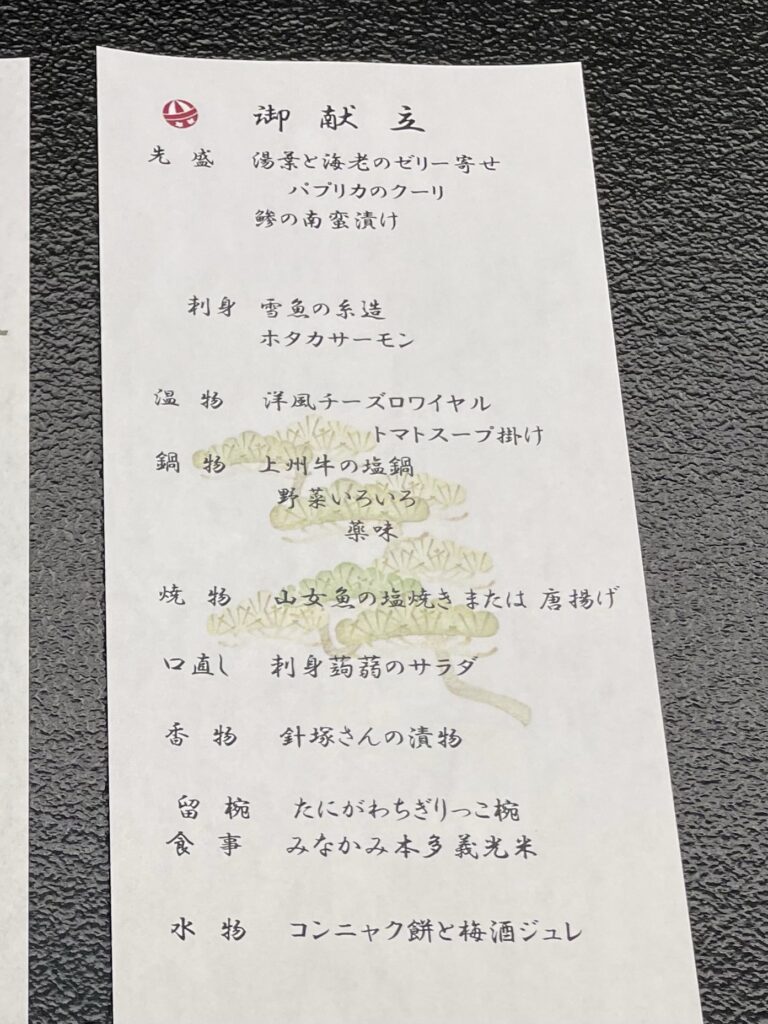 御献立
先盛 湯葉と海老のゼリー寄せ
パプリカのクーリ
鯵の南蛮漬け
刺身 雪魚の糸造
ホタカサーモン
温物 洋風チーズロワイヤル
トマトスープ掛け
鍋物 上州牛の塩鍋
野菜いろいろ
薬味
焼物 山女魚の塩焼き または 唐揚げ
口直し 刺身蒟蒻のサラダ
香物 針塚さんの漬物
留椀 たにがわちぎりっこ椀
食事 みなかみ本多義光米
水物 コンニャク餅と梅酒ジュレ